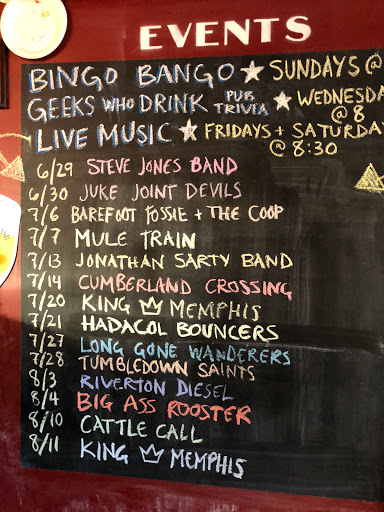 EVENTS
BINGO BANGO ★ SUNDAYS @
GEEKS WHO DRINK PUB TRIVIA ★ WEDNESDA @ 8
LIVE MUSIC ★ FRIDAYS + SATURDAY @ 8:30
6/29 STEVE JONES BAND
6/30 JUKE JOINT DEVILS
7/6 BAREFOOT FOSSIE + THE COOP
7/7 MULE TRAIN
7/13 JONATHAN SARTY BAND
7/14 CUMBERLAND CROSSING
7/20 KING MEMPHIS
7/21 HADACOL BOUNCERS
7/27 LONG GONE WANDERERS
7/28 TUMBLEDOWN SAINTS
8/3 RIVERTON DIESEL
8/4 BIG ASS ROOSTER
8/10 CATTLE CALL
8/11 KING MEMPHIS